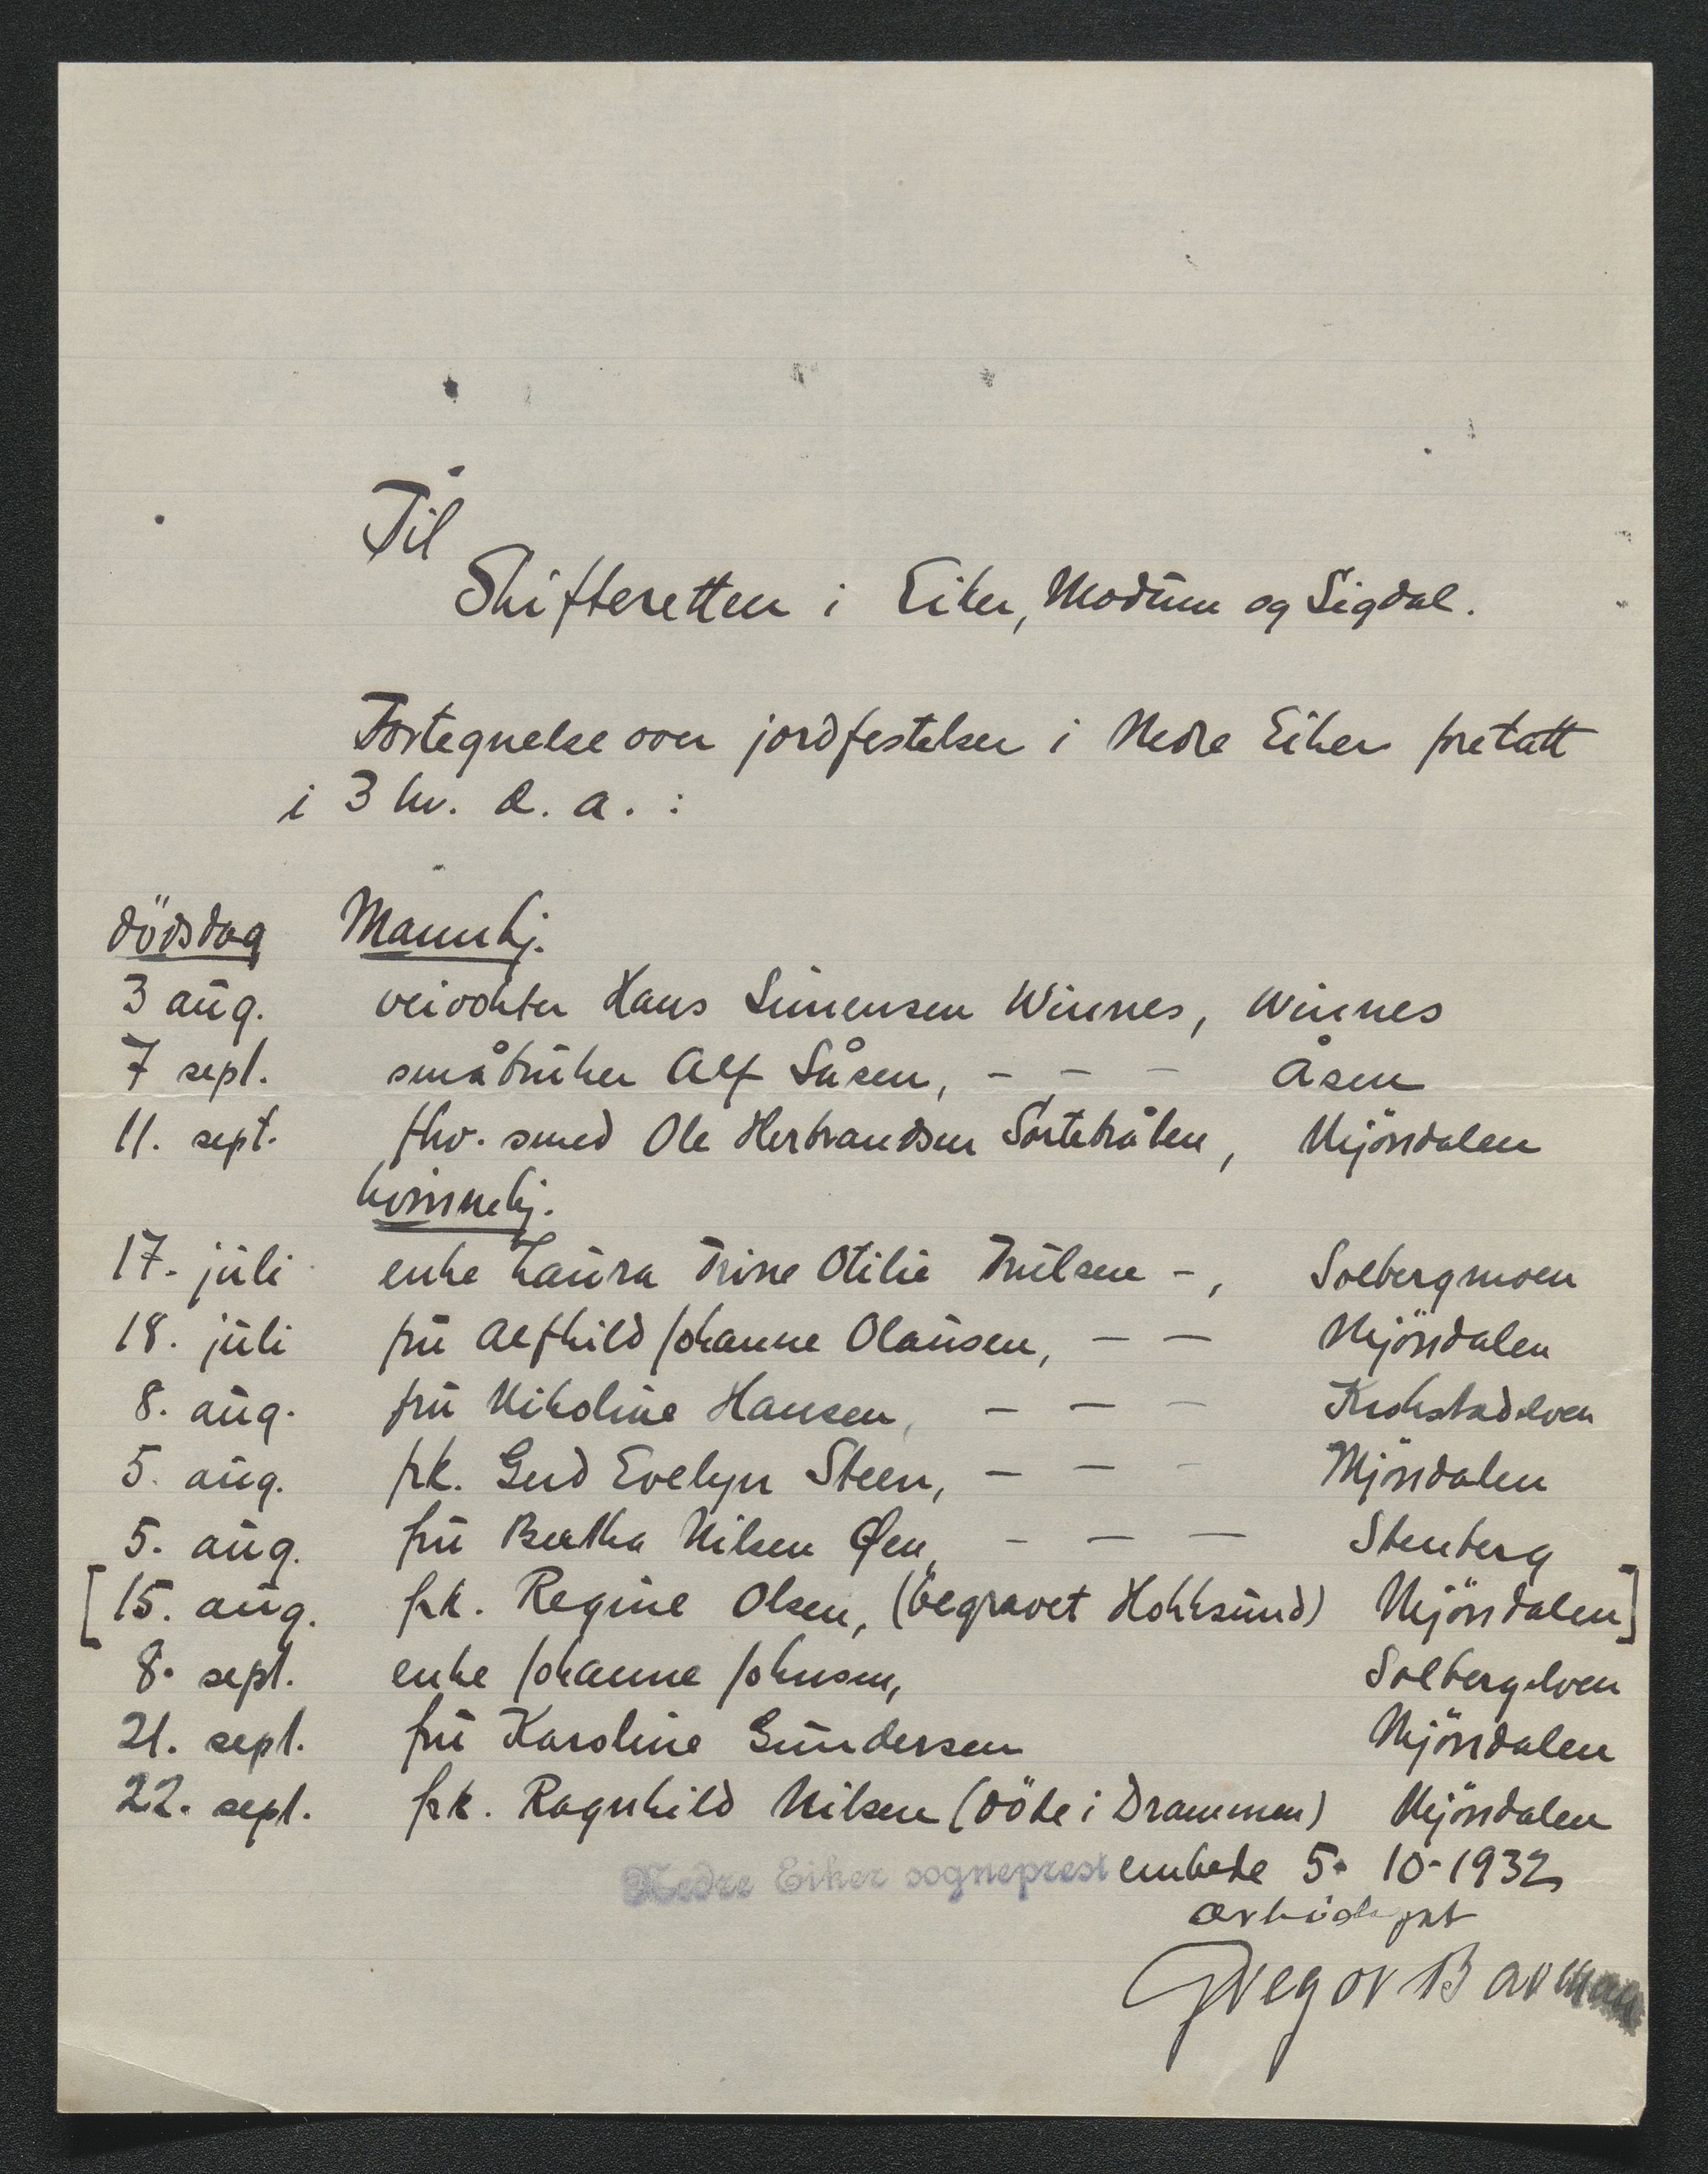 Til
Skifteretten i Eiker, Modum og Sigdal.
Fortegnelse over jordfestelser i Nedre Eiker foretatt
i 3 kv. d. a. :
dödsdag Mannkj.
3 aug. veivokter Hans Simensen Winnes, Winnes
7 sept. småbruker Alf Såsen, - - - Åsen
11. sept. fhv. smed Ole Herbrandsen Sortebråten, Mjöndalen
kvinnekj.
17. juli enke Laura Trine Otilie Trulsen -, Solbergmoen
18. juli fru Alfhild Johanne Olausen, - - Mjöndalen
8. aug. fru Nikoline Hansen, - - - Krokstadelven
5. aug. frk. Gerd Evelyn Steen, - - - Mjöndalen
5. aug. fru Bertha Nilsen Øen, - - - Stenberg
[15. aug. frk. Regine Olsen, (begravet Hokksund) Mjöndalen]
8. sept. enke Johanne Johnsen, Solbergelven
21. sept. fru Karoline Gundersen Mjöndalen
22. sept. frk. Ragnhild Nilsen (döde i Drammen) Mjöndalen
Nedre Eiker sogneprestembede 5. 10-1932
Gregor Barman